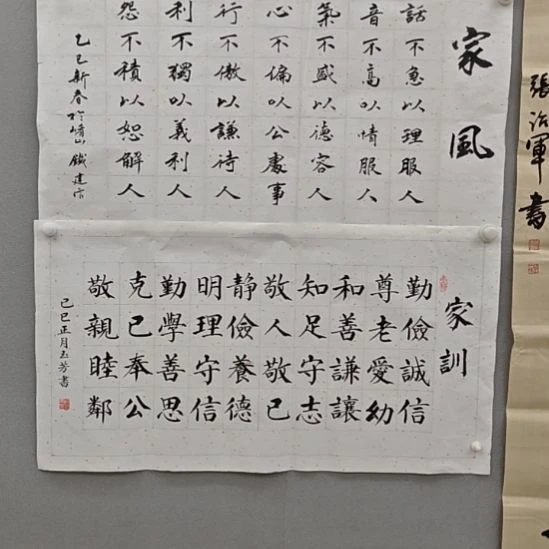 張治軍書
家風
話不急以理服人
音不高以情服人
氣不盛以德容人
心不偏以公處事
行不傲以謙待人
利不獨以義利人
怨不積以恕解人
乙巳新春於崂山鐵建
家訓
勤儉誠信
尊老愛幼
和善謙讓
知足守志
敬人敬己
静儉養德
明理守信
勤學善思
克己奉公
敬親睦鄰
己巳正月玉芳書